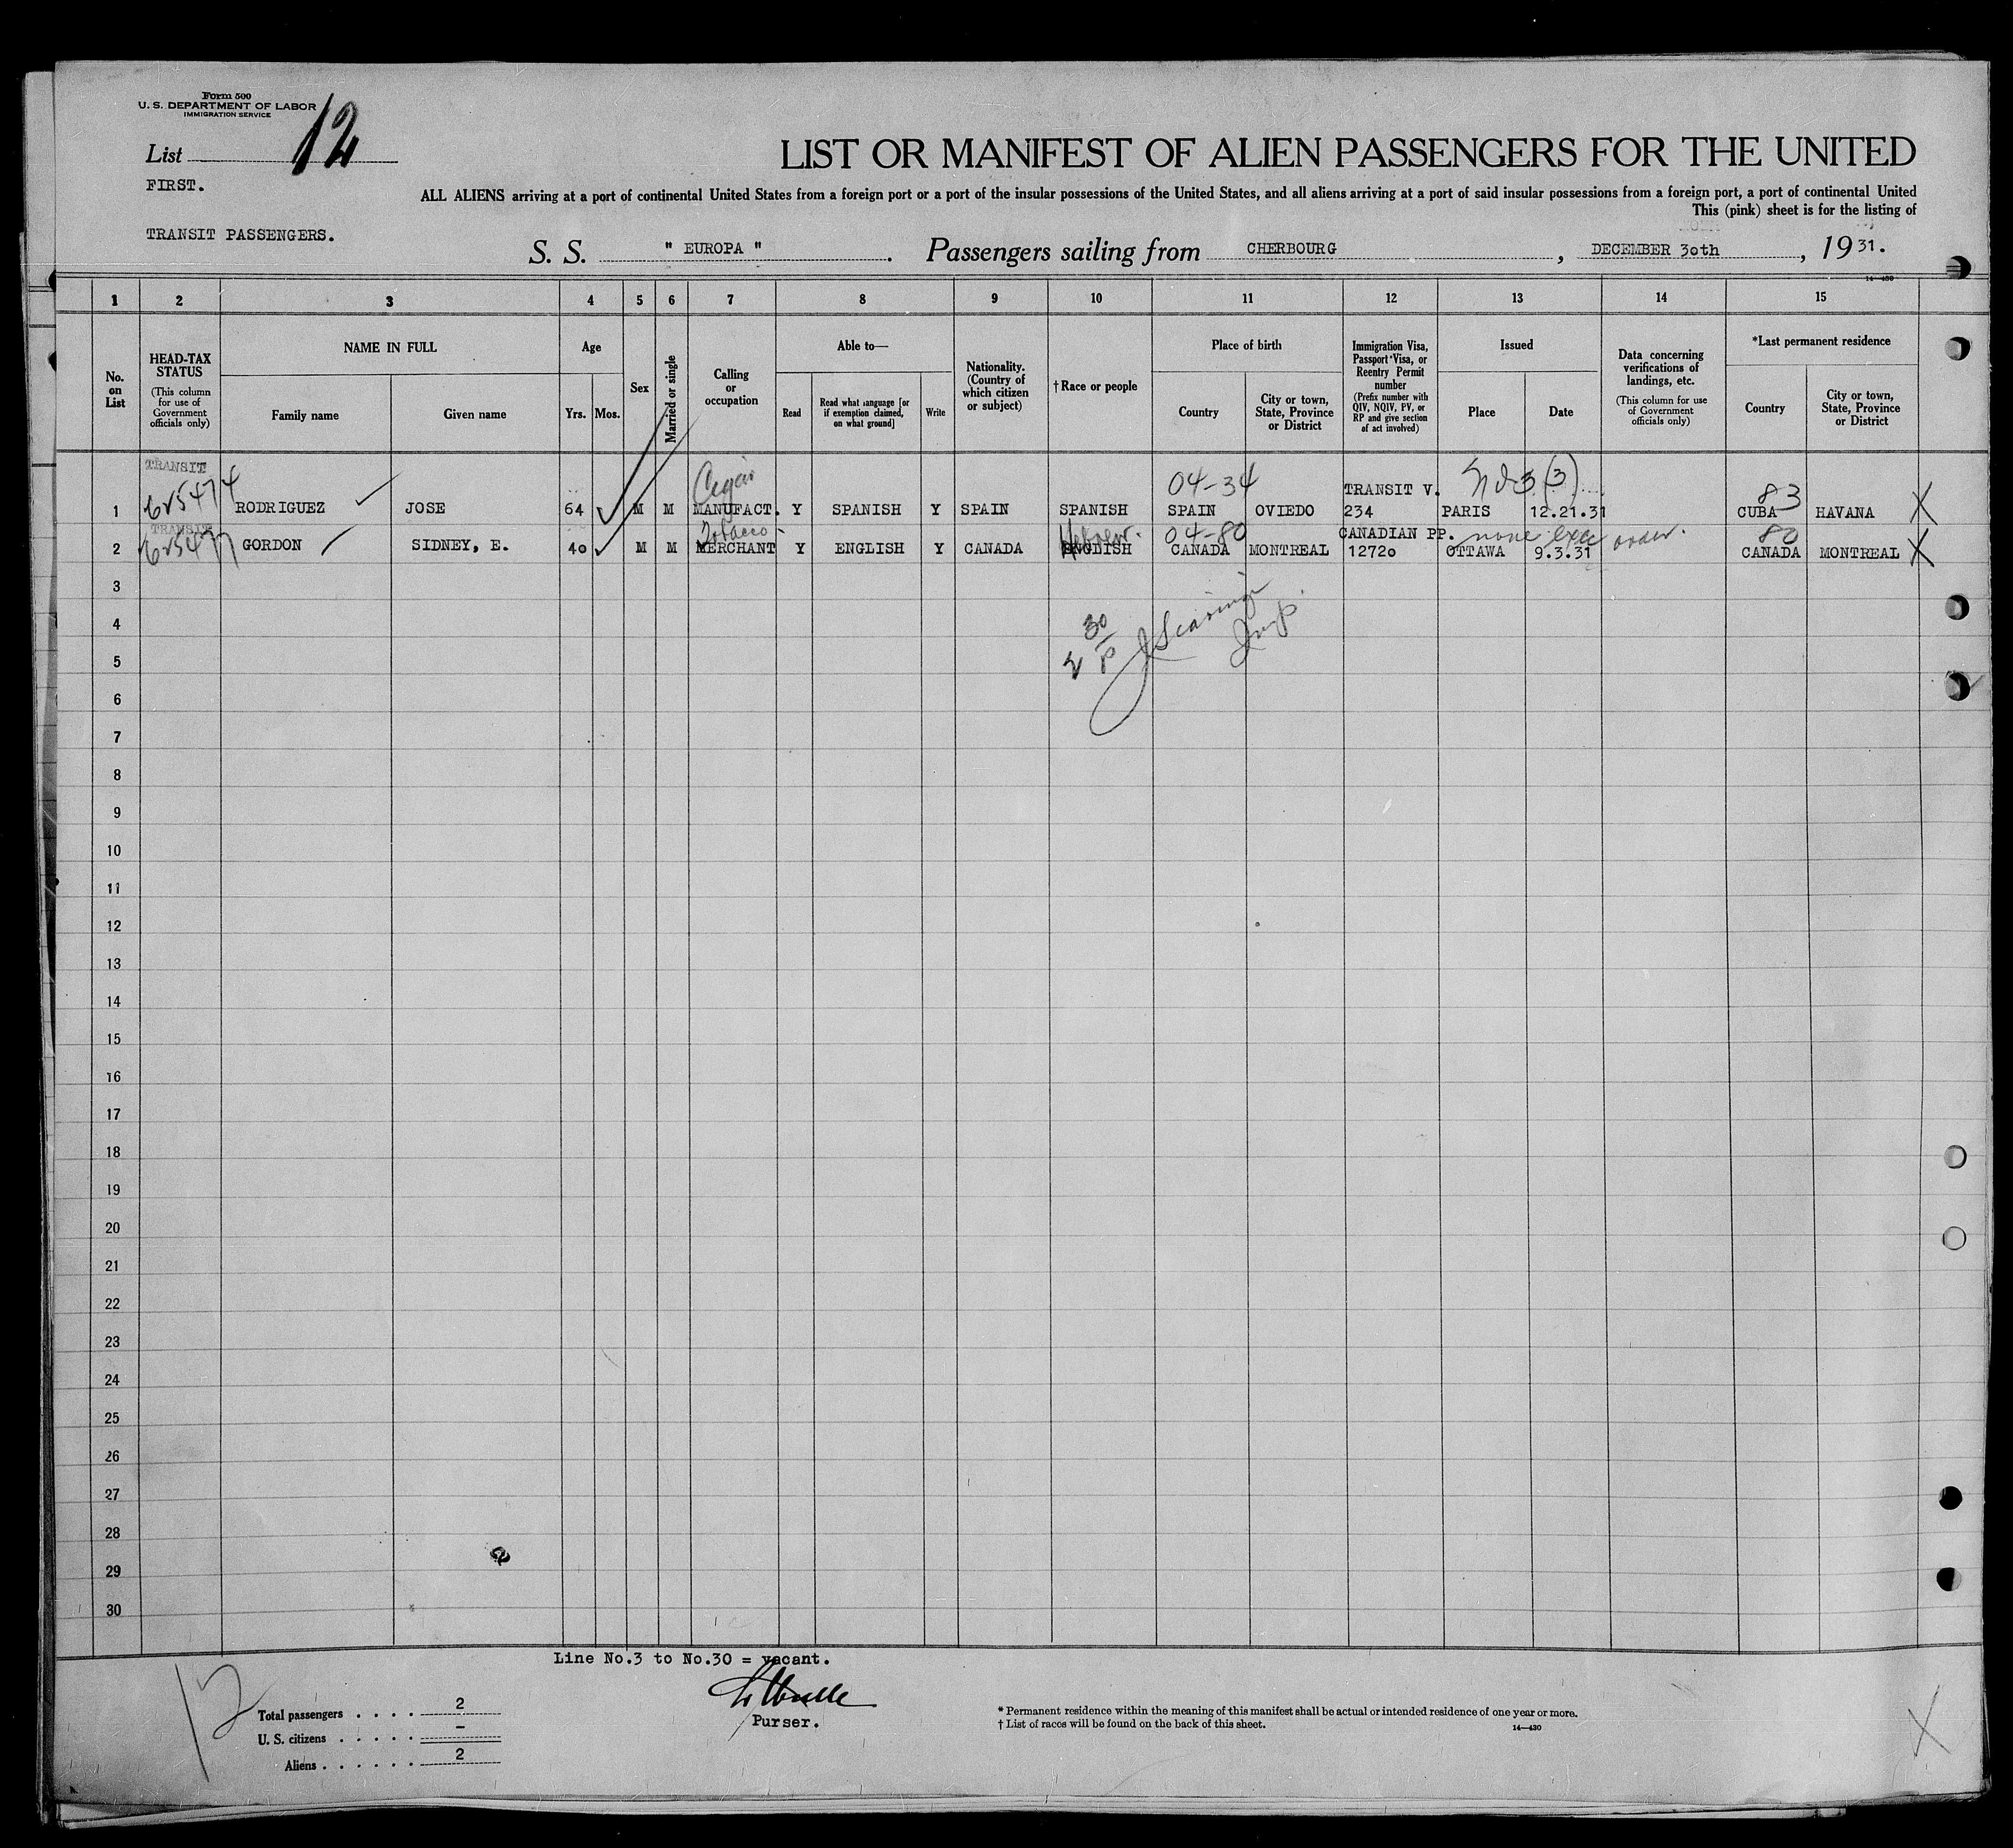 Form 500
U. S. DEPARTMENT OF LABOR
IMMIGRATION SERVICE
List 12
LIST OR MANIFEST OF ALIEN PASSENGERS FOR THE UNITED
FIRST.
ALL ALIENS arriving at a port of continental United States from a foreign port or a port of the insular possessions of the United States, and all aliens arriving at a port of said insular possessions from a foreign port, a port of continental United
This (pink) sheet is for the listing of
TRANSIT PASSENGERS.
S. S. " EUROPA ". Passengers sailing from CHERBOURG, DECEMBER 30th, 1931.
14—430
1 2 3 4 5 6 7 8 9 10 11 12 13 14 15
No. on List
HEAD-TAX STATUS (This column for use of Government officials only)
NAME IN FULL
Family name
Given name
Age
Yrs. Mos.
Sex
Married or single
Calling or occupation
Able to—
Read
Read what language [or if exemption claimed, on what ground]
Write
Nationality. (Country of which citizen or subject)
† Race or people
Place of birth
Country
City or town, State, Province or District
Immigration Visa, Passport Visa, or Reentry Permit number (Prefix number with QIV, NQIV, PV, or RP and give section of act involved)
Issued
Place
Date
Data concerning verifications of landings, etc. (This column for use of Government officials only)
*Last permanent residence
Country
City or town, State, Province or District
TRANSIT Cigar 04-34 TRANSIT V. 3(3) 83
1 RODRIGUEZ JOSE 64 M M MANUFACT. Y SPANISH Y SPAIN SPANISH SPAIN OVIEDO 234 PARIS 12.21.31 CUBA HAVANA X
TRANSIT Tobacco Hebrew. 04-80 CANADIAN PP. none exec order. 80
2 GORDON SIDNEY, E. 40 M M MERCHANT Y ENGLISH Y CANADA ENGLISH CANADA MONTREAL 12720 OTTAWA 9.3.31 CANADA MONTREAL X
3
4
5
6
7
8
9
10
11
12
13
14
15
16
17
18
19
20
21
22
23
24
25
26
27
28
29
30
Line No.3 to No.30 = vacant.
12
Purser.
Total passengers . . . . 2
U. S. citizens . . . . . —
Aliens . . . . . . 2
* Permanent residence within the meaning of this manifest shall be actual or intended residence of one year or more.
† List of races will be found on the back of this sheet.
14—430
X